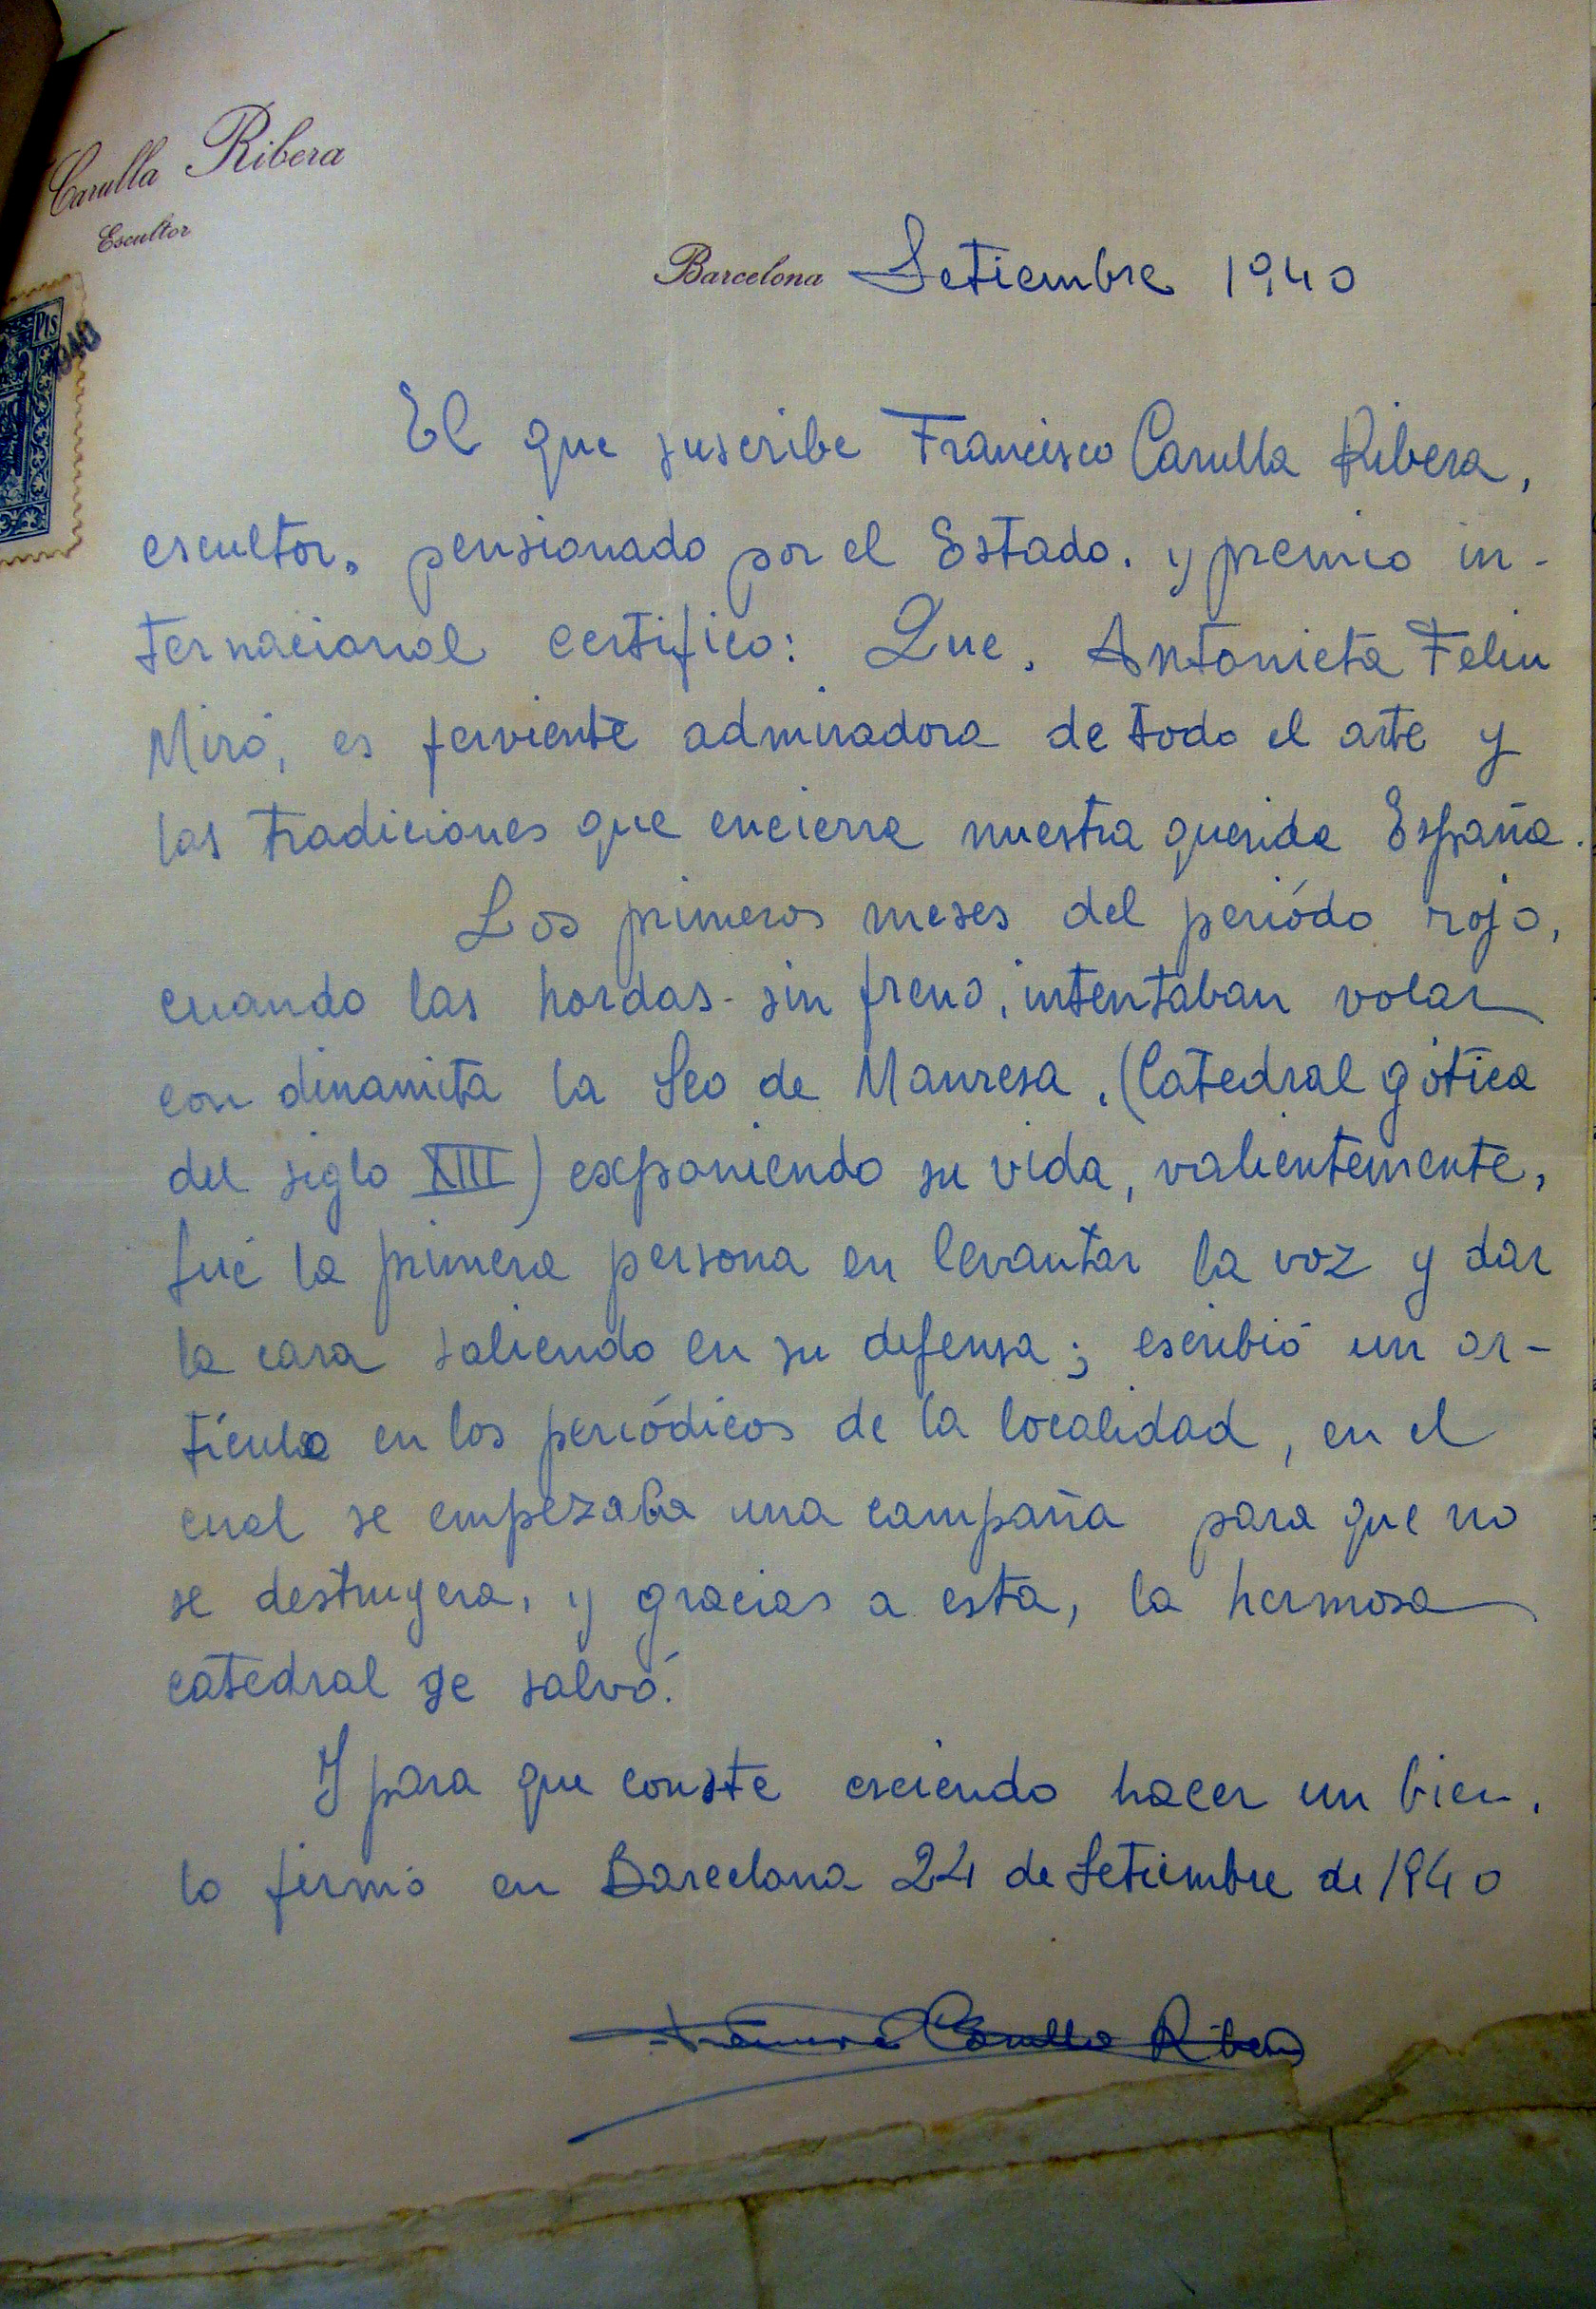 Carulla Ribera
Escultor
Barcelona Setiembre 1940
PTS
1940
El que suscribe Francisco Carulla Ribera,
escultor, pensionado por el Estado. y premio in-
ternacional certifico: Que, Antonieta Feliu
Miró, es ferviente admiradora de todo el arte y
las tradiciones que encierra nuestra querida España.
Los primeros meses del periódo rojo,
cuando las hordas sin freno, intentaban volar
con dinamita la Seo de Manresa, (Catedral gótica
del siglo XIII) exponiendo su vida, valientemente,
fué la primera persona en levantar la voz y dar
la cara saliendo en su defensa; escribió un ar-
tículo en los periódicos de la localidad, en el
cual se empezaba una campaña para que no
se destruyera, y gracias a esta, la hermosa
catedral se salvó.
Y para que conste creiendo hacer un bien,
lo firmo en Barcelona 24 de Setiembre de 1940
Carulla Ribera